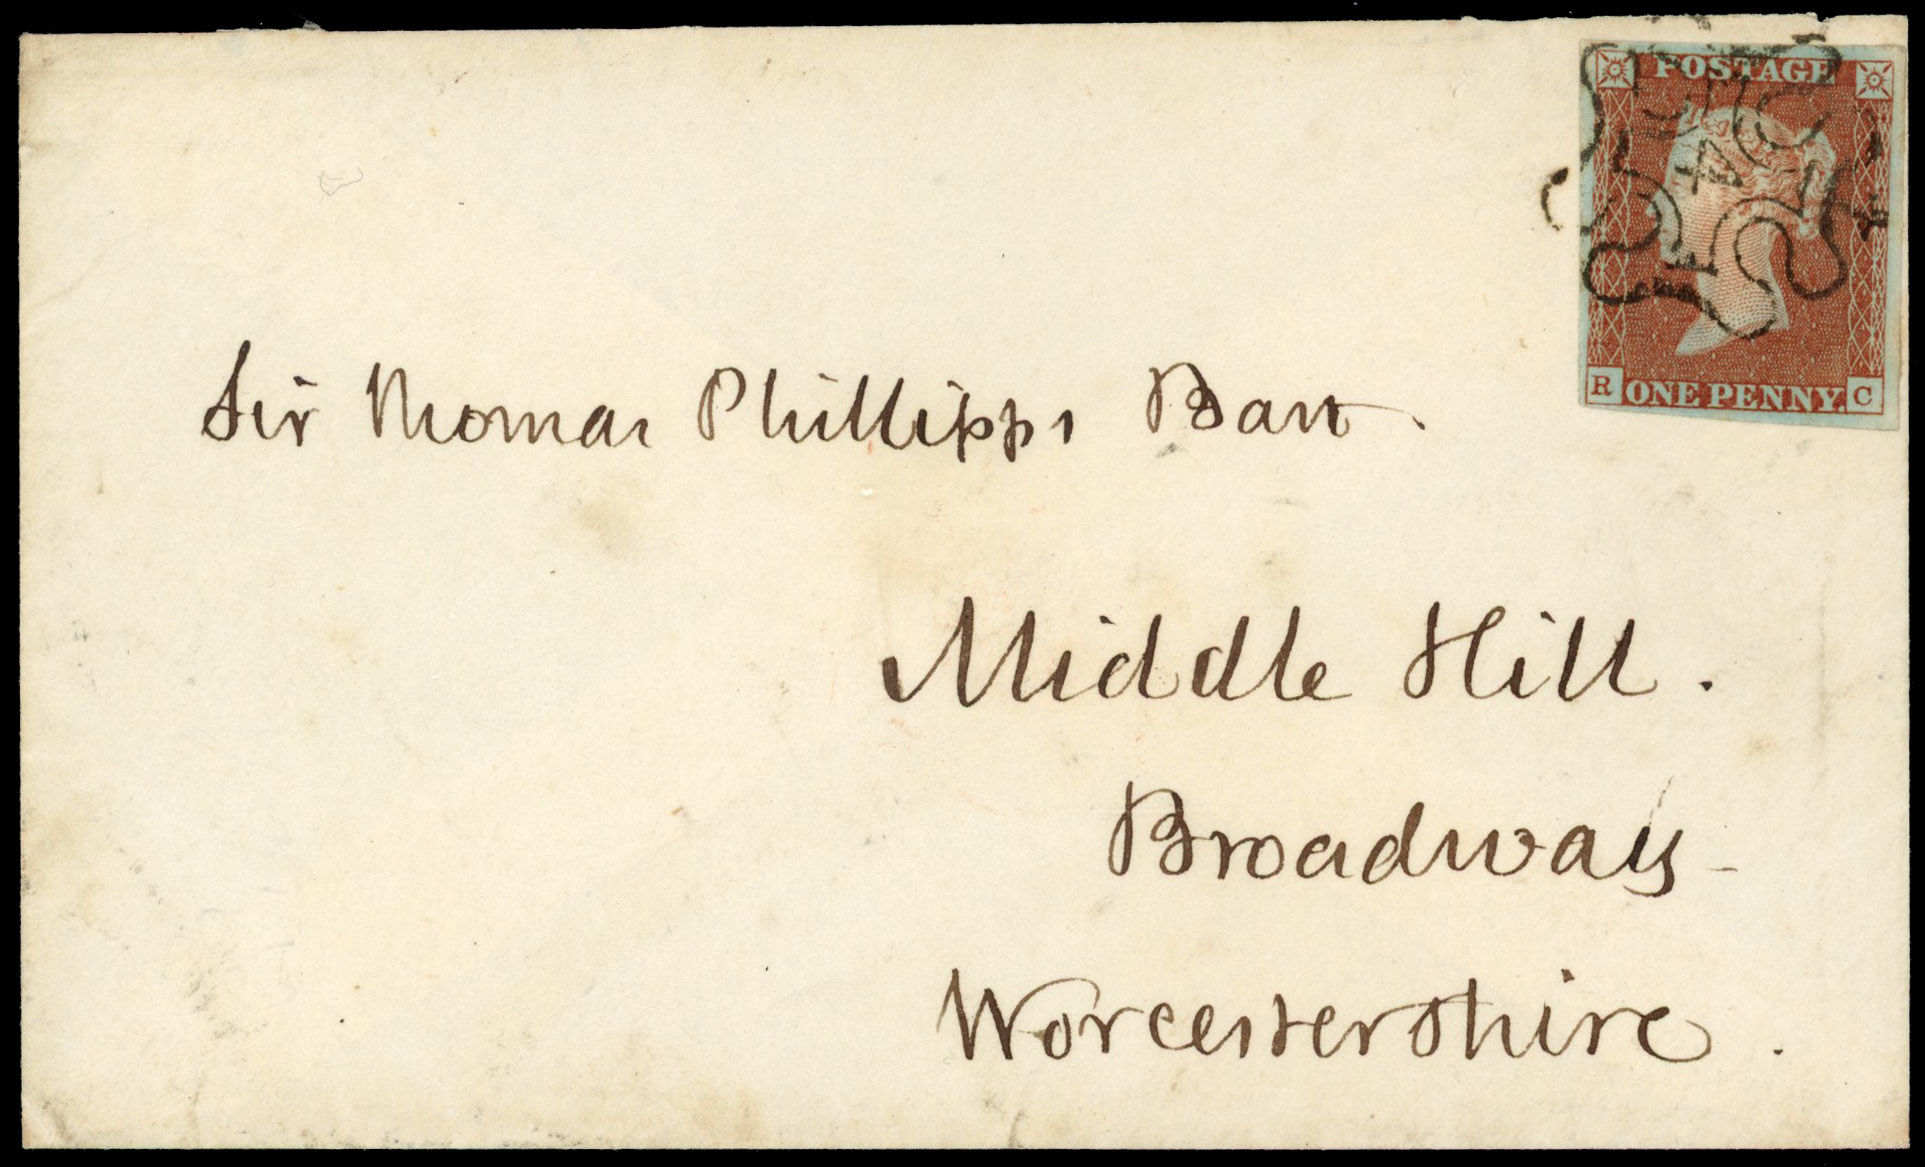 POSTAGE
4
R ONE PENNY. C
Sir Thomas Phillipps Bart.
Middle Hill.
Broadway
Worcestershire.